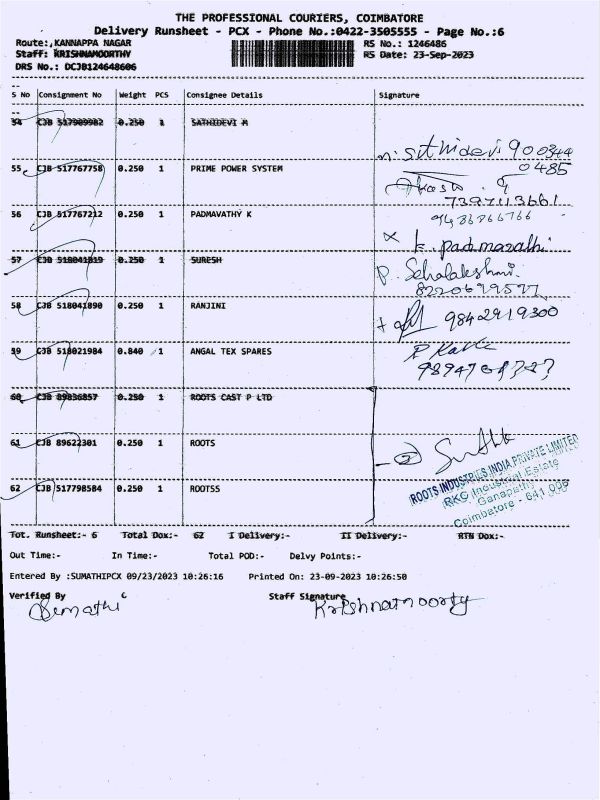 THE PROFESSIONAL COURIERS, COIMBATORE
Delivery Runsheet - PCX - Phone No.:0422-3505555 - Page No.:6
Route:,KANNAPPA NAGAR RS No.: 1246486
Staff: KRISHNAMOORTHY RS Date: 23-Sep-2023
DRS No.: DCJB124648606
S No Consignment No Weight PCS Consignee Details Signature
54 CJB 517909982 0.250 1 SATHIDEVI M
n. sithidevi 900344
0485
55 CJB 517767758 1 0.250 1 PRIME POWER SYSTEM
7397113661
56 CJB 517767212 0.250 1 PADMAVATHY K
x k. padmavathi
57 CJB 518041819 0.250 1 SURESH
P.
58 CJB 518041890 0.250 1 RANJINI
9842919300
59 CJB 518021984 0.840 1 ANGAL TEX SPARES
60 CJB 89836857 0.250 1 ROOTS CAST P LTD
61 CJB 89622301 0.250 1 ROOTS
62 CJB 517798584 0.250 1 ROOTSS
ROOTS INDUSTRIES INDIA PRIVATE LIMITED
RKG Industrial Estate
Ganapathi
Coimbatore - 641 006
Tot. Runsheet:- 6 Total Dox:- 62 I Delivery:- II Delivery:- RTN Dox:-
Out Time:- In Time:- Total POD:- Delvy Points:-
Entered By :SUMATHIPCX 09/23/2023 10:26:16 Printed On: 23-09-2023 10:26:50
Verified By Staff Signature
Sumathi Krishnamoorty